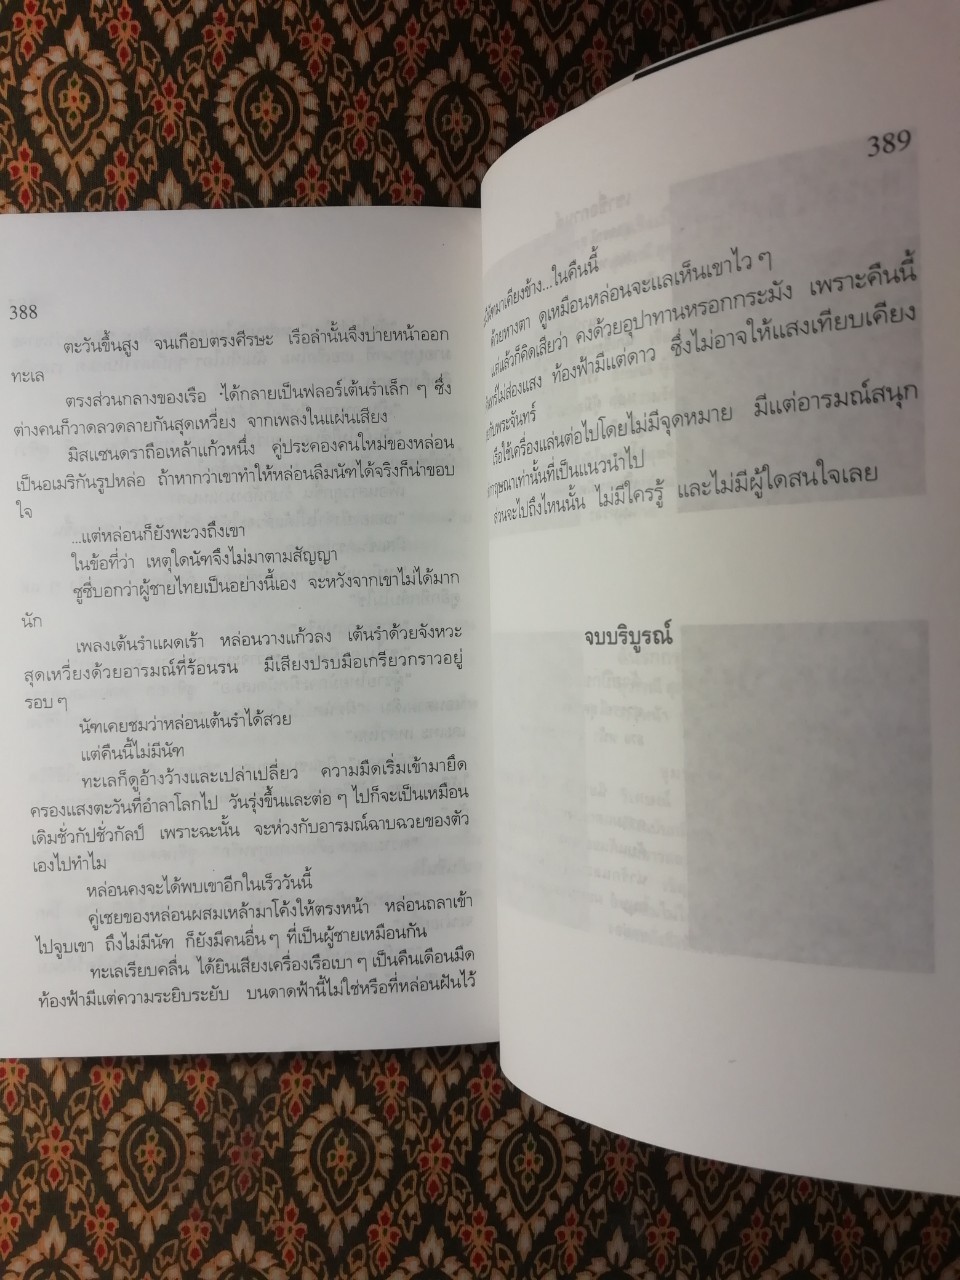 388
ตะวันขึ้นสูง จนเกือบตรงศีรษะ เรือลำนั้นจึงบ่ายหน้าออก
ทะเล
ตรงส่วนกลางของเรือ ได้กลายเป็นฟลอร์เต้นรำเล็ก ๆ ซึ่ง
ต่างคนก็วาดลวดลายกันสุดเหวี่ยง จากเพลงในแผ่นเสียง
มิสแซนดราถือเหล้าแก้วหนึ่ง คู่ประคองคนใหม่ของหล่อน
เป็นอเมริกันรูปหล่อ ถ้าหากว่าเขาทำให้หล่อนลืมนัทได้จริงก็น่าขอบ
ใจ
...แต่หล่อนก็ยังพะวงถึงเขา
ในข้อที่ว่า เหตุใดนัทจึงไม่มาตามสัญญา
ซูซี่บอกว่าผู้ชายไทยเป็นอย่างนี้เอง จะหวังจากเขาไม่ได้มาก
นัก
เพลงเต้นรำแผดเร้า หล่อนวางแก้วลง เต้นรำด้วยจังหวะ
สุดเหวี่ยงด้วยอารมณ์ที่ร้อนรน มีเสียงปรบมือเกรียวกราวอยู่
รอบ ๆ
นัทเคยชมว่าหล่อนเต้นรำได้สวย
แต่คืนนี้ไม่มีนัท
ทะเลก็ดูอ้างว้างและเปล่าเปลี่ยว ความมืดเริ่มเข้ามายึด
ครองแสงตะวันที่อำลาโลกไป วันรุ่งขึ้นและต่อ ๆ ไปก็จะเป็นเหมือน
เดิมชั่วกัปชั่วกัลป์ เพราะฉะนั้น จะห่วงกับอารมณ์ฉาบฉวยของตัว
เองไปทำไม
หล่อนคงจะได้พบเขาอีกในเร็ววันนี้
คู่เชยของหล่อนผสมเหล้ามาโค้งให้ตรงหน้า หล่อนถลาเข้า
ไปจูบเขา ถึงไม่มีนัท ก็ยังมีคนอื่น ๆ ที่เป็นผู้ชายเหมือนกัน
ทะเลเรียบคลื่น ได้ยินเสียงเครื่องเรือเบา ๆ เป็นคืนเดือนมืด
ท้องฟ้ามีแต่ความระยิบระยับ บนดาดฟ้านี้ไม่ใช่หรือที่หล่อนฝันไว้
389
มาเคียงข้าง...ในคืนนี้
ด้วยหางตา ดูเหมือนหล่อนจะแลเห็นเขาไว ๆ
แต่แล้วก็คิดเสียว่า คงด้วยอุปาทานหรอกกระมัง เพราะคืนนี้
ไม่ส่องแสง ท้องฟ้ามีแต่ดาว ซึ่งไม่อาจให้แสงเทียบเคียง
กับพระจันทร์
เรือใช้เครื่องแล่นต่อไปโดยไม่มีจุดหมาย มีแต่อารมณ์สนุก
เท่านั้นที่เป็นแนวนำไป
ส่วนจะไปถึงไหนนั้น ไม่มีใครรู้ และไม่มีผู้ใดสนใจเลย
จบบริบูรณ์